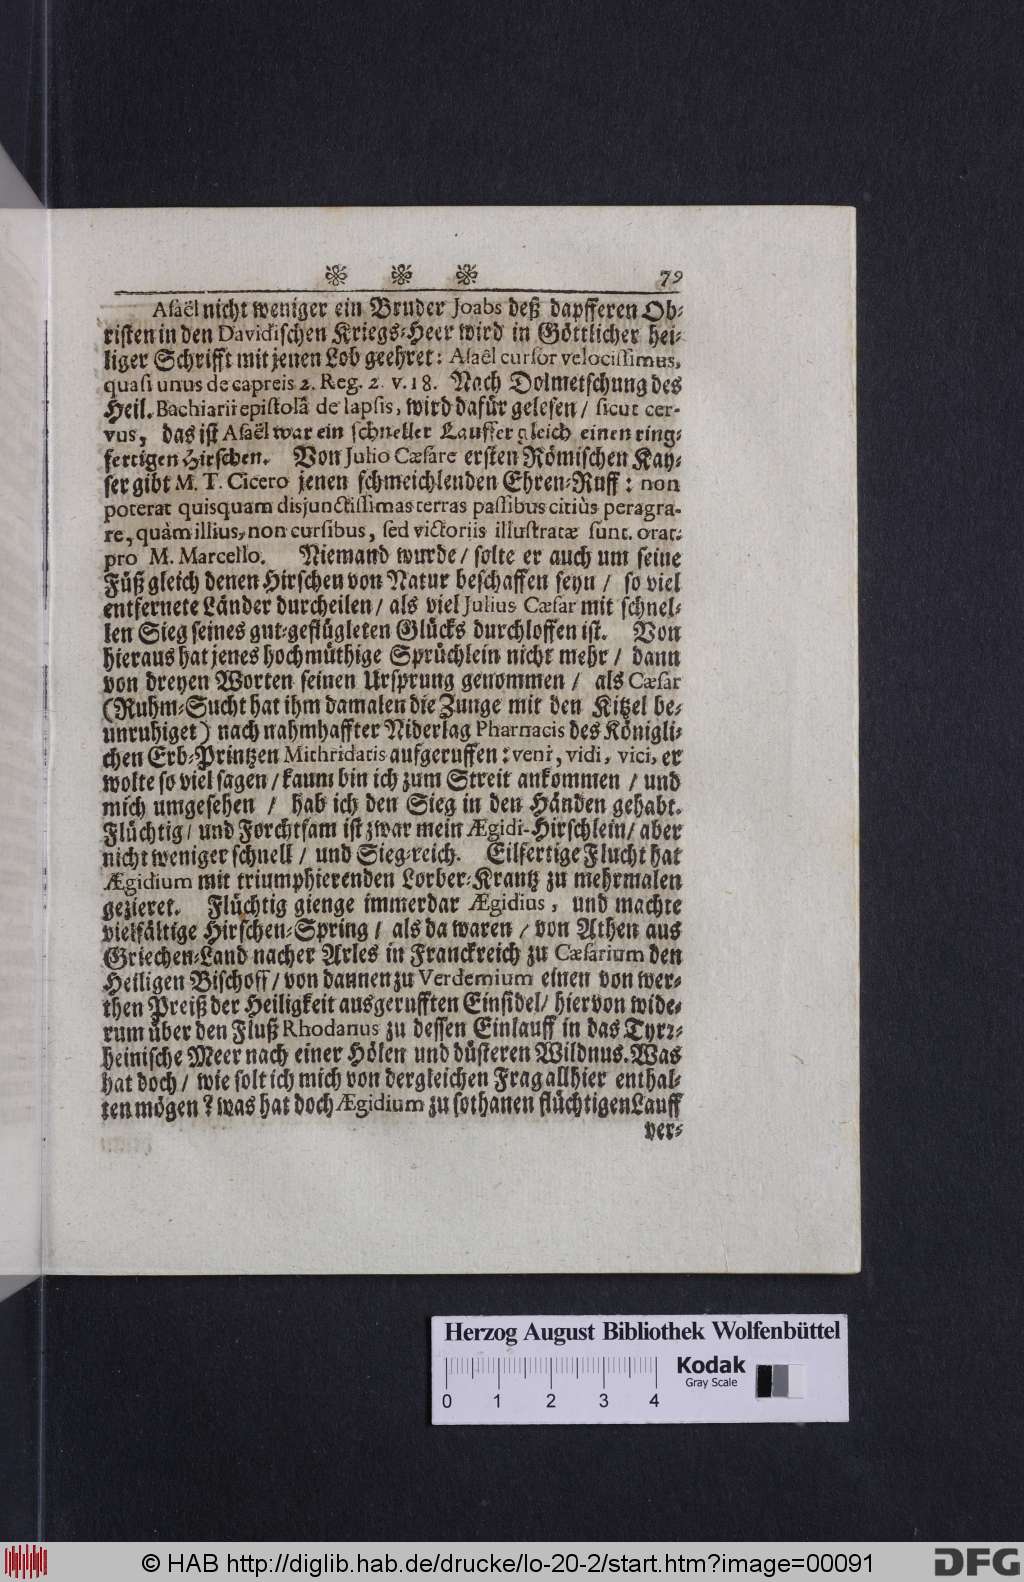 79
Asaël nicht weniger ein Bruder Joabs deß dapfferen Ob-
risten in den Davidischen Kriegs-Heer wird in Göttlicher hei-
liger Schrifft mit jenen Lob geehret: Asaël cursor velocissimus,
quasi unus de capreis 2. Reg. 2. v. 18. Nach Dolmetschung des
Heil. Bachiarii epistolâ de lapsis, wird dafür gelesen / sicut cer-
vus, das ist Asaël war ein schneller Lauffer gleich einen ring-
fertigen Hirschen. Von Julio Cæsare ersten Römischen Kay-
ser gibt M. T. Cicero jenen schmeichlenden Ehren-Ruff: non
poterat quisquam disjunctissimas terras passibus citiùs peragra-
re, quàm illius, non cursibus, sed victoriis illustratæ sunt. orat.
pro M. Marcello. Niemand wurde / solte er auch um seine
Füß gleich denen Hirschen von Natur beschaffen seyn / so viel
entfernete Länder durcheilen / als viel Julius Cæsar mit schnel-
len Sieg seines gut-geflügleten Glücks durchloffen ist. Von
hieraus hat jenes hochmüthige Sprüchlein nicht mehr / dann
von dreyen Worten seinen Ursprung genommen / als Cæsar
(Ruhm-Sucht hat ihm damalen die Zunge mit den Kitzel be-
unruhiget) nach nahmhaffter Niderlag Pharnacis des Königli-
chen Erb-Printzen Mithridatis aufgeruffen: veni, vidi, vici, er
wolte so viel sagen / kaum bin ich zum Streit ankommen / und
mich umgesehen / hab ich den Sieg in den Händen gehabt.
Flüchtig / und Forchtsam ist zwar mein Ægidi-Hirschlein / aber
nicht weniger schnell / und Sieg-reich. Eilfertige Flucht hat
Ægidium mit triumphierenden Lorber-Krantz zu mehrmalen
gezieret. Flüchtig gienge immerdar Ægidius, und machte
vielfältige Hirschen-Spring / als da waren / von Athen aus
Griechen-Land nacher Arles in Franckreich zu Cæsarium den
Heiligen Bischoff / von dannen zu Verdemium einen von wer-
then Preiß der Heiligkeit ausgerufften Einsidel / hiervon wide-
rum über den Fluß Rhodanus zu dessen Einlauff in das Tyrz-
heinische Meer nach einer Hölen und düsteren Wildnus. Was
hat doch / wie solt ich mich von dergleichen Frag allhier enthal-
ten mögen? was hat doch Ægidium zu sothanen flüchtigen Lauff
ver-
Herzog August Bibliothek Wolfenbüttel
Kodak
Gray Scale
0 1 2 3 4
© HAB http://diglib.hab.de/drucke/lo-20-2/start.htm?image=00091
DFG